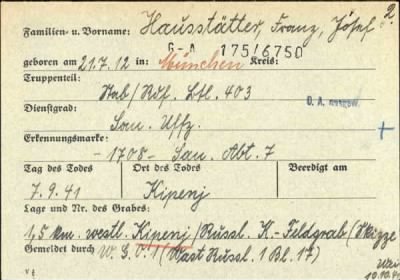 2.
Familien- u. Vorname: Hausstätter, Franz, Josef
G-A 175/6750
geboren am 21.7.12 in: München Kreis:
Truppenteil:
Stab/Rdf. Btl. 403
Dienstgrad: D. A. ausgew.
San. Uffz.
Erkennungsmarke:
-1708- San. Abt. 7
Tag des Todes Ort des Todes Beerdigt am
7.9.41 Kipenj
Lage und Nr. des Grabes:
1,5 km. westl. Kipenj/Russl. K.-Feldgrab (Skizze
Gemeldet durch W.G.O.1 (Wast Russl. 1 Bl. 17)
10.10.41